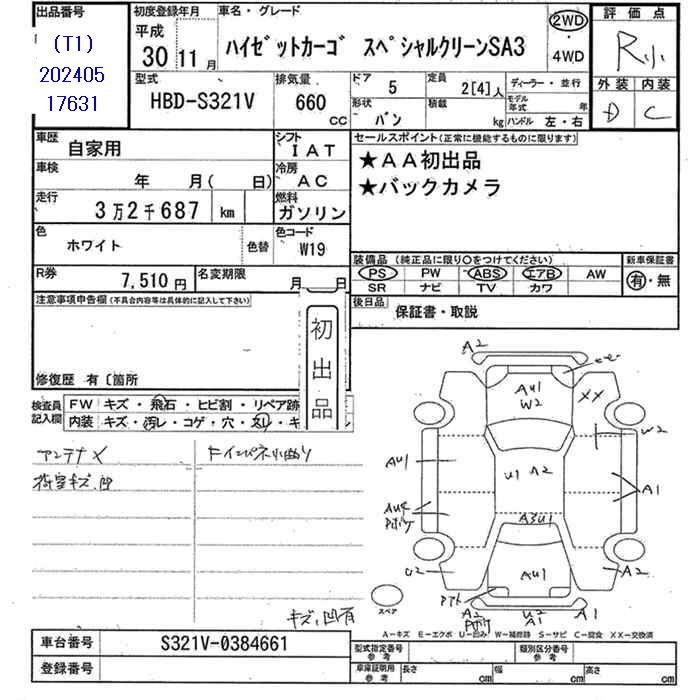 出品番号
(T1)
202405
17631
初度登録年月
平成
30 11月
車名・グレード
ハイゼットカーゴ スペシャルクリーンSA3
2WD
4WD
評価点
R小
外装 内装
D C
型式
HBD-S321V
排気量
660
CC
ドア
5
定員
2[4]人
ディーラー・並行
形状
バン
積載
kg
モデル年式
年
ハンドル 左・右
車歴
自家用
シフト
IAT
車検
年 月( 日)
冷房
AC
走行
3万2千687 km
燃料
ガソリン
色
ホワイト
色替
色コード
W19
R券
7,510円
名変期限
月 日
セールスポイント(正常に機能するものに限ります)
★AA初出品
★バックカメラ
装備品(純正品に限り○をつけてください)
PS PW ABS エアB AW
SR ナビ TV カワ
新車保証書
有・無
後日品
保証書・取説
注意事項申告欄(不具合内容等は具体的に記入して下さい)
初出品
修復歴 有〔箇所
検査員記入欄
FW キズ・飛石・ヒビ割・リペア跡
内装 キズ・汚レ・コゲ・穴・スレ・キ
アンテナX
荷室キズ、凹
キズ、凹有
A2
AU1
W2
XX
W2
AU1
U1 A2
A1
A3U1
U2
AU1
A2
A2
U2
A1
A1
スペア
A-キズ E-エクボ U-凹み W-補修跡 S-サビ C-腐食 XX-交換済
車台番号
S321V-0384661
登録番号
型式指定番号
参考
類別区分番号
参考
車庫証明用
参考
長さ cm
幅 cm
高さ cm